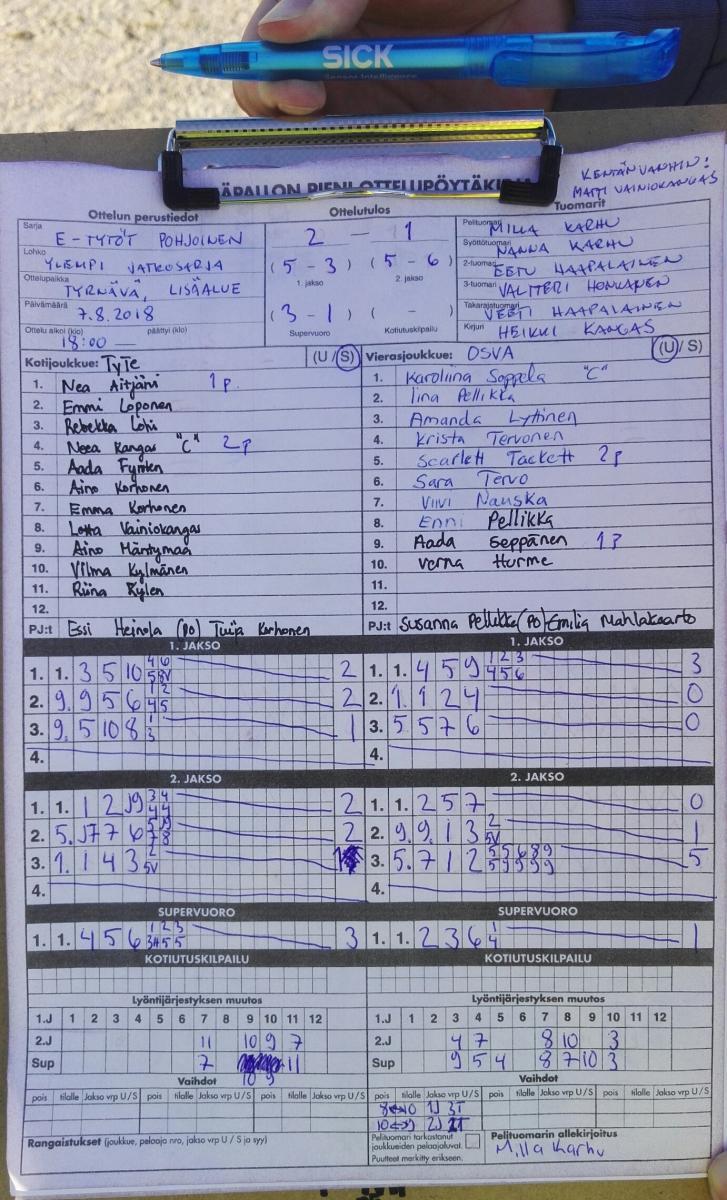 SICK
Sensor Intelligence
KENTÄNVANHIN:
MATTI VAINIOKANGAS
PIENI OTTELUPÖYTÄKIRJA
Ottelun perustiedot
Sarja
E-TYTÖT POHJOINEN
Lohko
YLEMPI JATKOSARJA
Ottelupaikka
TYRNÄVÄ, LISÄALUE
Päivämäärä
7.8.2018
Ottelu alkoi (klo) päättyi (klo)
18:00 —
Ottelutulos
2 - 1
(5 - 3) (5 - 6)
1. jakso 2. jakso
(3 - 1) ( - )
Supervuoro Kotiutuskilpailu
Tuomarit
Pelituomari MILLA KARHU
Syöttötuomari NANNA KARHU
2-tuomari EETU HAAPALAINEN
3-tuomari VALTTERI HONKANEN
Takarajatuomari VEETI HAAPALAINEN
Kirjuri HEIKKI KANGAS
Kotijoukkue: TyTe (U / S)
1. Nea Aitjärvi 1p.
2. Emmi Loponen
3. Rebekka
4. Neea Kangas "C" 2p
5. Aada
6. Aino Korhonen
7. Emma Korhonen
8. Lotta Vainiokangas
9. Aino Mäntymaa
10. Vilma Kylmänen
11. Riina Kylen
12.
PJ:t Essi Heinola (PO) Tuija Korhonen
Vierasjoukkue: OSVA (U / S)
1. Karoliina Soppela "C"
2. Iina Pellikka
3. Amanda Lyttinen
4. Krista Tervonen
5. Scarlett Tackett 2p
6. Sara Tervo
7. Viivi Nauska
8. Enni Pellikka
9. Aada Seppänen 1p
10. Verna Hurme
11.
12.
PJ:t Susanna Pellikka (PO) Emilia Mahlakaarto
1. JAKSO
1. 1. 3 5 10 2
2. 9. 9 5 6 2
3. 9. 5 10 8 1
4.
1. JAKSO
1. 1. 4 5 9 1 2 3 4 5 6 3
2. 1. 1 2 4 0
3. 5 5 7 6 0
4.
2. JAKSO
1. 1. 1 2 2
2. 5. 2
3. 1. 1 4 3 1
4.
2. JAKSO
1. 1. 2 5 7 0
2. 9. 9 1 3 1
3. 5. 7 1 2 5
4.
SUPERVUORO
1. 1. 4 5 6 3
SUPERVUORO
1. 1. 2 3 6 1
KOTIUTUSKILPAILU
KOTIUTUSKILPAILU
Lyöntijärjestyksen muutos
1.J 1 2 3 4 5 6 7 8 9 10 11 12
2.J 11 10 9 7
Sup 7 11
10 9
Lyöntijärjestyksen muutos
1.J 1 2 3 4 5 6 7 8 9 10 11 12
2.J 4 7 8 10 3
Sup 9 5 4 8 7 10 3
Vaihdot
pois tilalle Jakso vrp U / S pois tilalle Jakso vrp U / S pois tilalle Jakso vrp U / S
Vaihdot
pois tilalle Jakso vrp U / S pois tilalle Jakso vrp U / S pois tilalle Jakso vrp U / S
Rangaistukset (joukkue, pelaaja nro, jakso vrp U / S ja syy)
Pelituomari tarkastanut
joukkueiden pelaajaluvat.
Puutteet merkitty erikseen.
Pelituomarin allekirjoitus
Milla Karhu